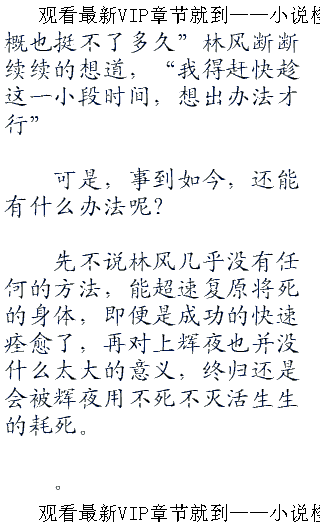 观看最新VIP章节就到——小说
概也挺不了多久”林风断断
续续的想道，“我得赶快趁
这一小段时间，想出办法才
行”
可是，事到如今，还能
有什么办法呢？
先不说林风几乎没有任
何的方法，能超速复原将死
的身体，即便是成功的快速
痊愈了，再对上辉夜也并没
什么太大的意义，终归还是
会被辉夜用不死不灭活生生
的耗死。
。
观看最新VIP章节就到——小说